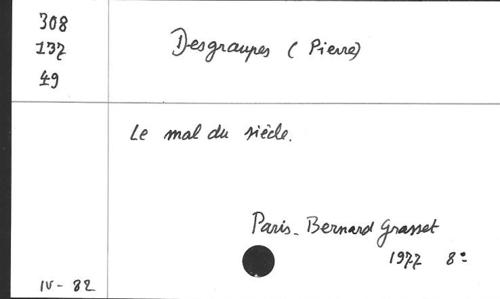 308
137
49
Desgraupes (Pierre)
Le mal du siècle.
Paris - Bernard Grasset
1977 8°
IV - 82